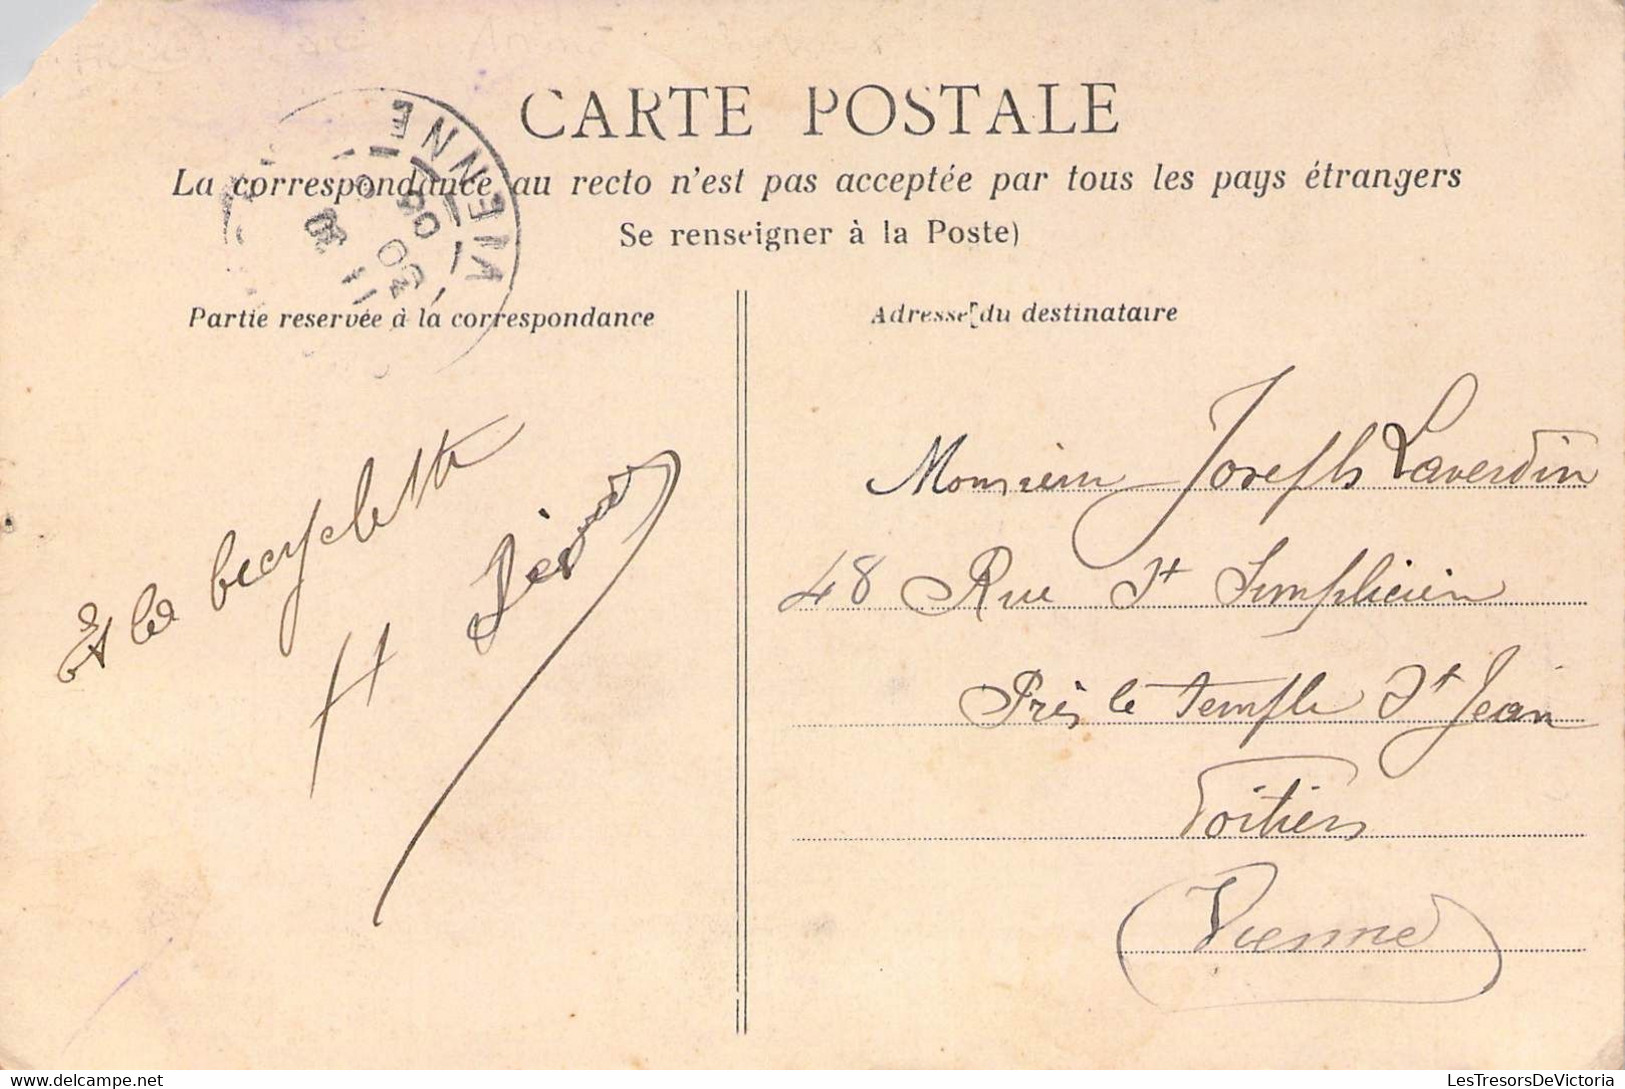 CARTE POSTALE
La correspondance au recto n'est pas acceptée par tous les pays étrangers
Se renseigner à la Poste)
VIENNE
11
30
06
Partie reservée à la correspondance
Adresse du destinataire
Et la becyclette
H
Monsieur Joseph Laverdin
48 Rue St Simplicien
Près le temple St Jean
Poitiers
Vienne
LesTresorsDeVictoria